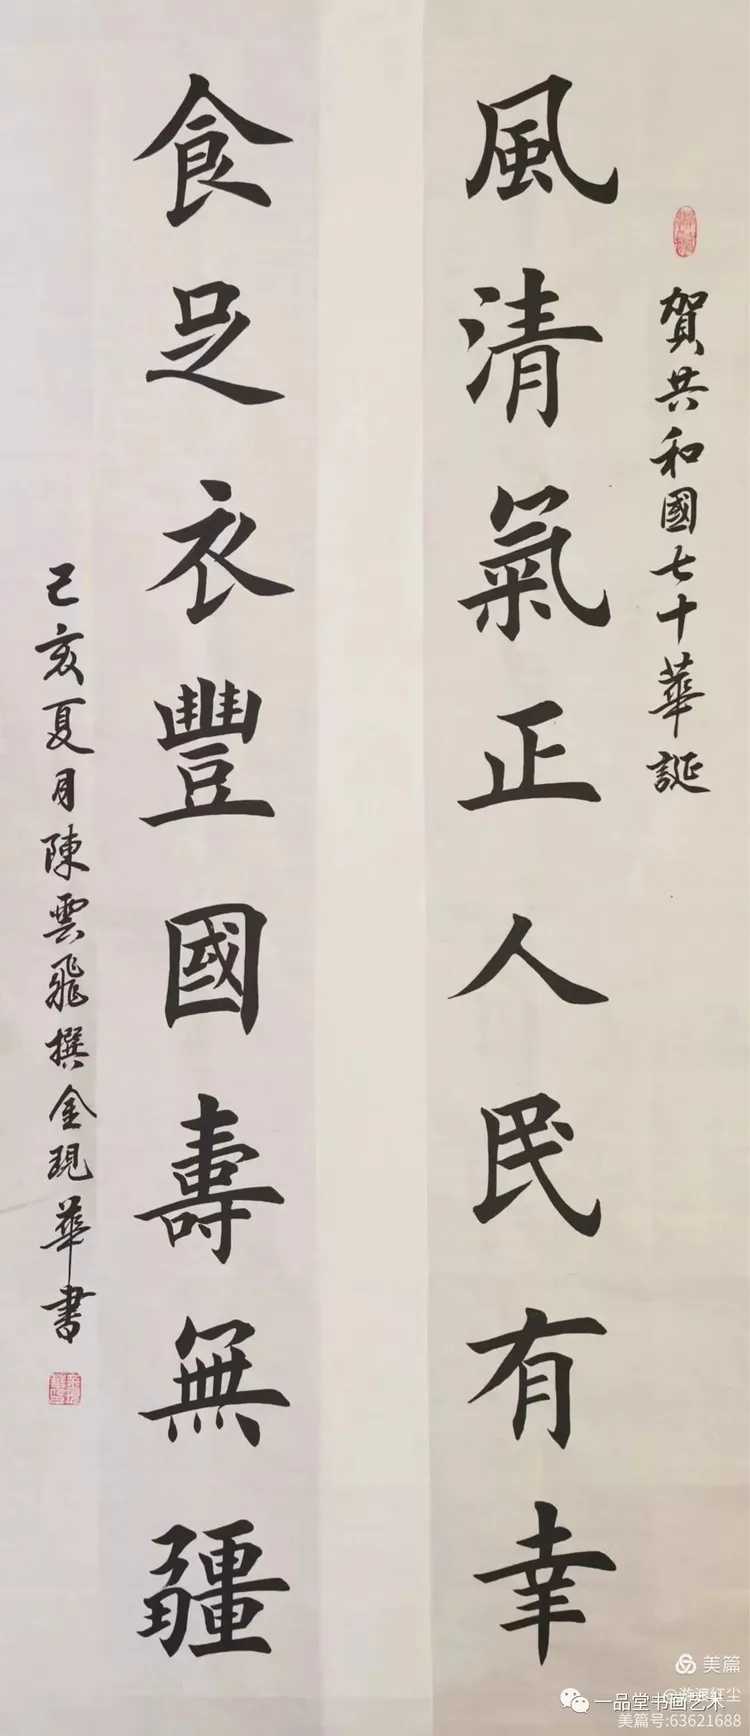 賀共和國七十華誕
風清氣正人民有幸
食足衣豐國壽無疆
己亥夏月陳雲飛撰金現華書
美篇
@游渡红尘
一品堂书画艺术
美篇号:63621688